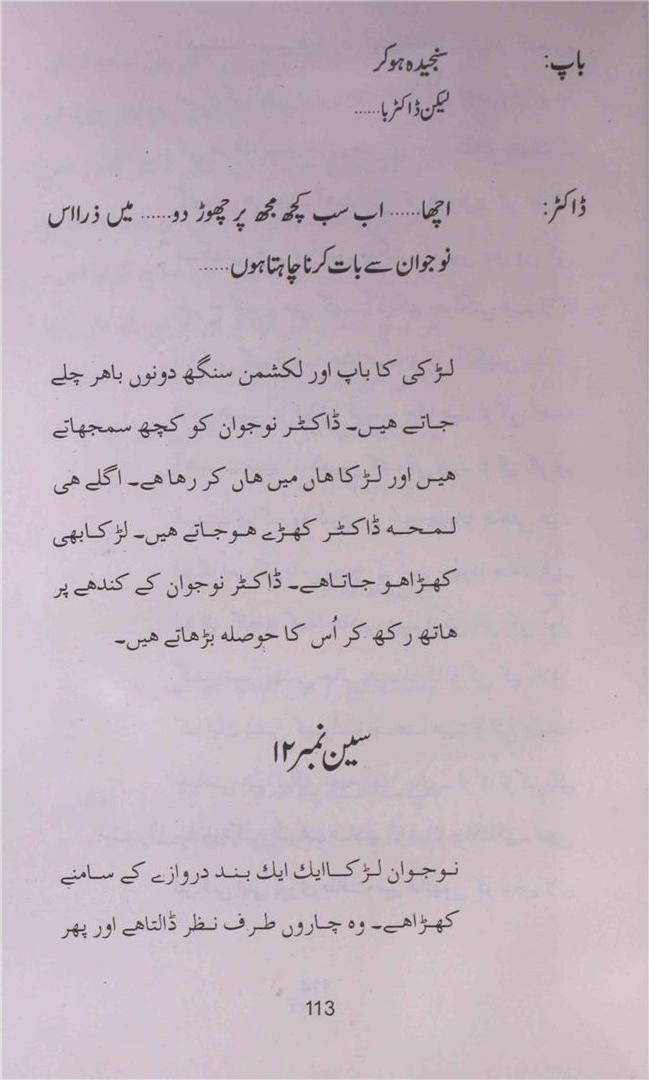 باپ: سنجیدہ ہوکر
لیکن ڈاکٹر با......
ڈاکٹر: اچھا...... اب سب کچھ مجھ پر چھوڑ دو...... میں ذرا اس
نوجوان سے بات کرنا چاہتا ہوں......
لڑکی کا باپ اور لکشمن سنگھ دونوں باھر چلے
جاتے ھیں۔ ڈاکٹر نوجوان کو کچھ سمجھاتے
ھیں اور لڑکا ھاں میں ھاں کر رھا ھے۔ اگلے ھی
لمحہ ڈاکٹر کھڑے ھوجاتے ھیں۔ لڑکا بھی
کھڑا ھو جاتا ھے۔ ڈاکٹر نوجوان کے کندھے پر
ھاتھ رکھ کر اُس کا حوصلہ بڑھاتے ھیں۔
سین نمبر ۱۲
نوجوان لڑکا ایك ایك بند دروازے کے سامنے
کھڑا ھے۔ وہ چاروں طرف نظر ڈالتا ھے اور پھر
113